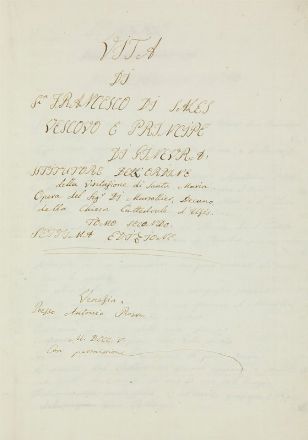 VITA
DI
S.n FRANCESCO DI SALES
VESCOVO E PRINCIPE
DI GINEVRA.
ISTITUTORE DELL'ORDINE
della Visitazione di Santa Maria
Opera del Sig.r Di Marsolier, Decano
della Chiesa Cattedrale d'Usez.
TOMO SECONDO.
SETTIMA EDIZIONE.
Venezia,
Presso Antonio Rosa
M. DCCC. V
Con permissione